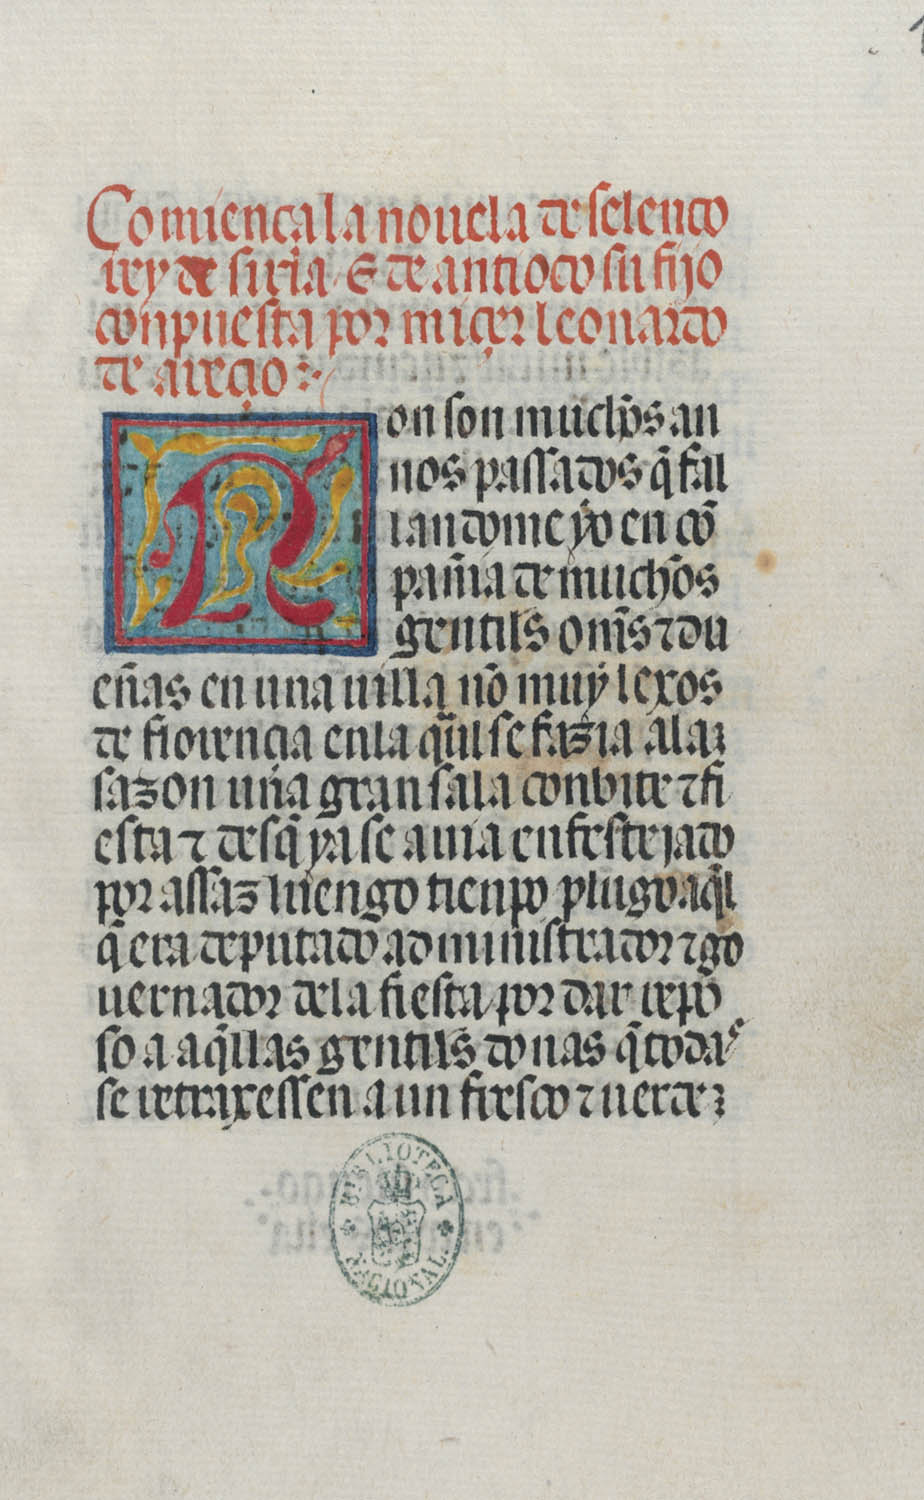 Comiença la nouela de seleuco
rey de siria & de antioco su fijo
conpuesta por miçer leonardo
de areçio :~
Non son muchos an
nos passados q̃ fal
landome yo en cõ
pañia de muchos
gentils om̃s ⁊ du
eñas en una uilla nõ muy lexos
de florençia en la qũal se fazia a la
sazon una gran sala conbite ⁊ fi
esta ⁊ desq̃ ya se auia enfestejado
por assaz luengo tienpo plugo aq̃l
q̃ era deputado administrador ⁊ go
uernador de la fiesta por dar repo
so a aq̃llas gentils donas q̃ todas
se retraxessen a un fresco ⁊ uerde
BIBLIOTECA
NACIONAL